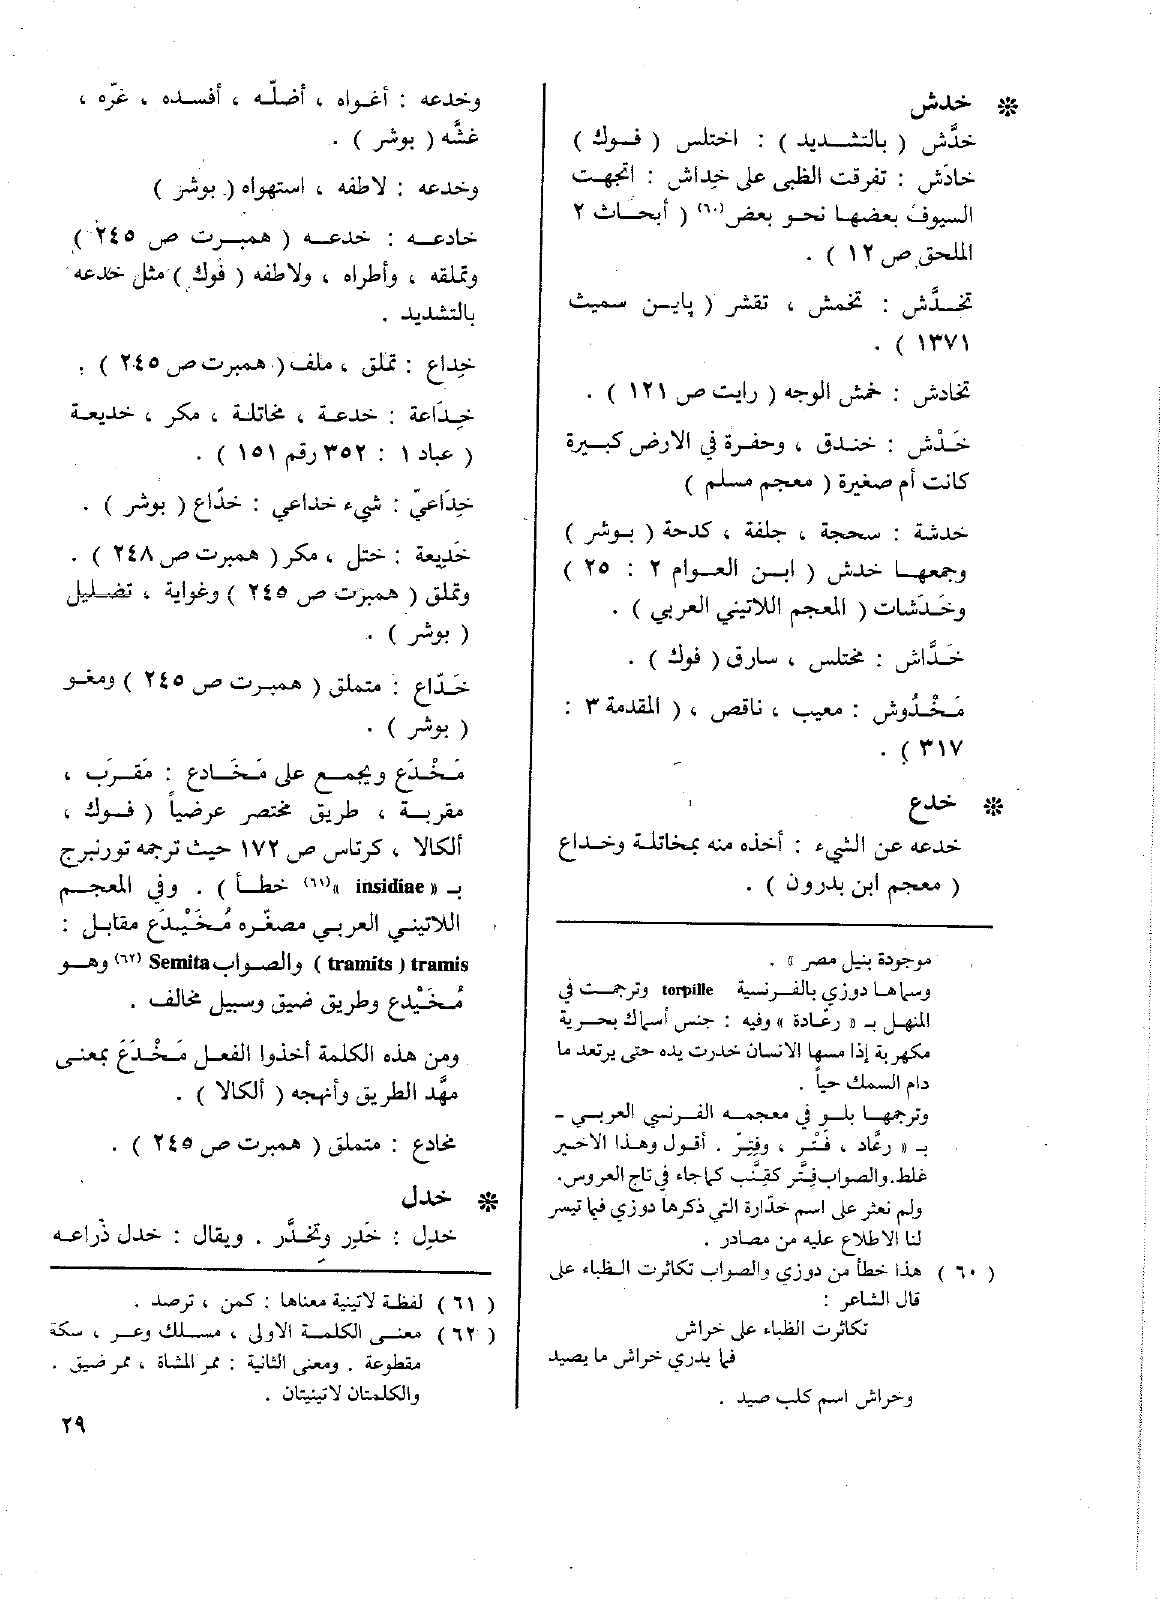 ❊ خدش
خدَّش ( بالتشديد ) : اختلس ( فوك )
خادَش : تفرقت الظبى على خِداش : اتجهت
السيوف بعضها نحو بعض(٦٠) ( أبحاث ٢
الملحق ص ١٢ ) .
تخدَّش : تخمش ، تقشر ( پاين سميث
١٣٧١ ) .
تخادش : خمش الوجه ( رايت ص ١٢١ ) .
خَدْش : خندق ، وحفرة في الارض كبيرة
كانت أم صغيرة ( معجم مسلم )
خدشة : سحجة ، جلفة ، كدحة ( بوشر )
وجمعها خدش ( ابن العوام ٢ : ٢٥ )
وخَدَشات ( المعجم اللاتيني العربي ) .
خَدَّاش : مختلس ، سارق ( فوك ) .
مَخْدُوش : معيب ، ناقص ، ( المقدمة ٣ :
٣١٧ ) .
❊ خدع
خدعه عن الشيء : أخذه منه بمخاتلة وخداع
( معجم ابن بدرون ) .
موجودة بنيل مصر » .
وسماها دوزي بالفرنسية torpille وترجمت في
المنهل بـ « رعّادة » وفيه : جنس أسماك بحرية
مكهربة إذا مسها الانسان خدرت يده حتى يرتعد ما
دام السمك حياً .
وترجمها بلو في معجمه الفرنسي العربي -
بـ « رعَّاد ، فَتْر ، وفِتِرّ . أقول وهذا الاخير
غلط. والصواب فِتَّر كقِنَّب كما جاء في تاج العروس.
ولم نعثر على اسم خذّارة التي ذكرها دوزي فيما تيسر
لنا الاطلاع عليه من مصادر .
( ٦٠ ) هذا خطأ من دوزي والصواب تكاثرت الظباء على
قال الشاعر :
تكاثرت الظباء على خراش
فما يدري خراش ما يصيد
وخراش اسم كلب صيد .
وخدعه : أغواه ، أضلّه ، أفسده ، غرّه ،
غشَّه ( بوشر ) .
وخدعه : لاطفه ، استهواه ( بوشر )
خادعه : خدعه ( همبرت ص ٢٤٥ )
وتملقه ، وأطراه ، ولاطفه ( فوك ) مثل خدعه
بالتشديد .
خِداع : تملق ، ملف ( همبرت ص ٢٤٥ ) .
خِدَاعة : خدعة ، مخاتلة ، مكر ، خديعة
( عباد ١ : ٣٥٢ رقم ١٥١ ) .
خِدَاعيّ : شيء خداعي : خدّاع ( بوشر ) .
خَدِيعة : ختل ، مكر ( همبرت ص ٢٤٨ ) .
وتملق ( همبرت ص ٢٤٥ ) وغواية ، تضليل
( بوشر ) .
خَدّاع : متملق ( همبرت ص ٢٤٥ ) ومغو
( بوشر ) .
مَخْدَع ويجمع على مَخَادع : مَقرَب ،
مقربة ، طريق مختصر عرضياً ( فوك ،
ألكالا ، كرتاس ص ١٧٢ حيث ترجمه تورنبرج
بـ « insidiae »(٦١) خطأ ) . وفي المعجم
اللاتيني العربي مصغّره مُخَيْدَع مقابل :
tramis ( tramits ) والصواب Semita(٦٢) وهو
مُخَيْدع وطريق ضيق وسبيل مخالف .
ومن هذه الكلمة أخذوا الفعل مَخْدَعَ بمعنى
مهَّد الطريق وأنهجه ( ألكالا ) .
مخادع : متملق ( همبرت ص ٢٤٥ ) .
❊ خدل
خدِل : خَدِر وتخدَّر . ويقال : خدل ذراعه
( ٦١ ) لفظة لاتينية معناها : كمن ، ترصد .
( ٦٢ ) معنى الكلمة الاولى ، مسلك وعر ، سكة
مقطوعة . ومعنى الثانية : ممر المشاة ، ممر ضيق .
والكلمتان لاتينيتان .
٢٩